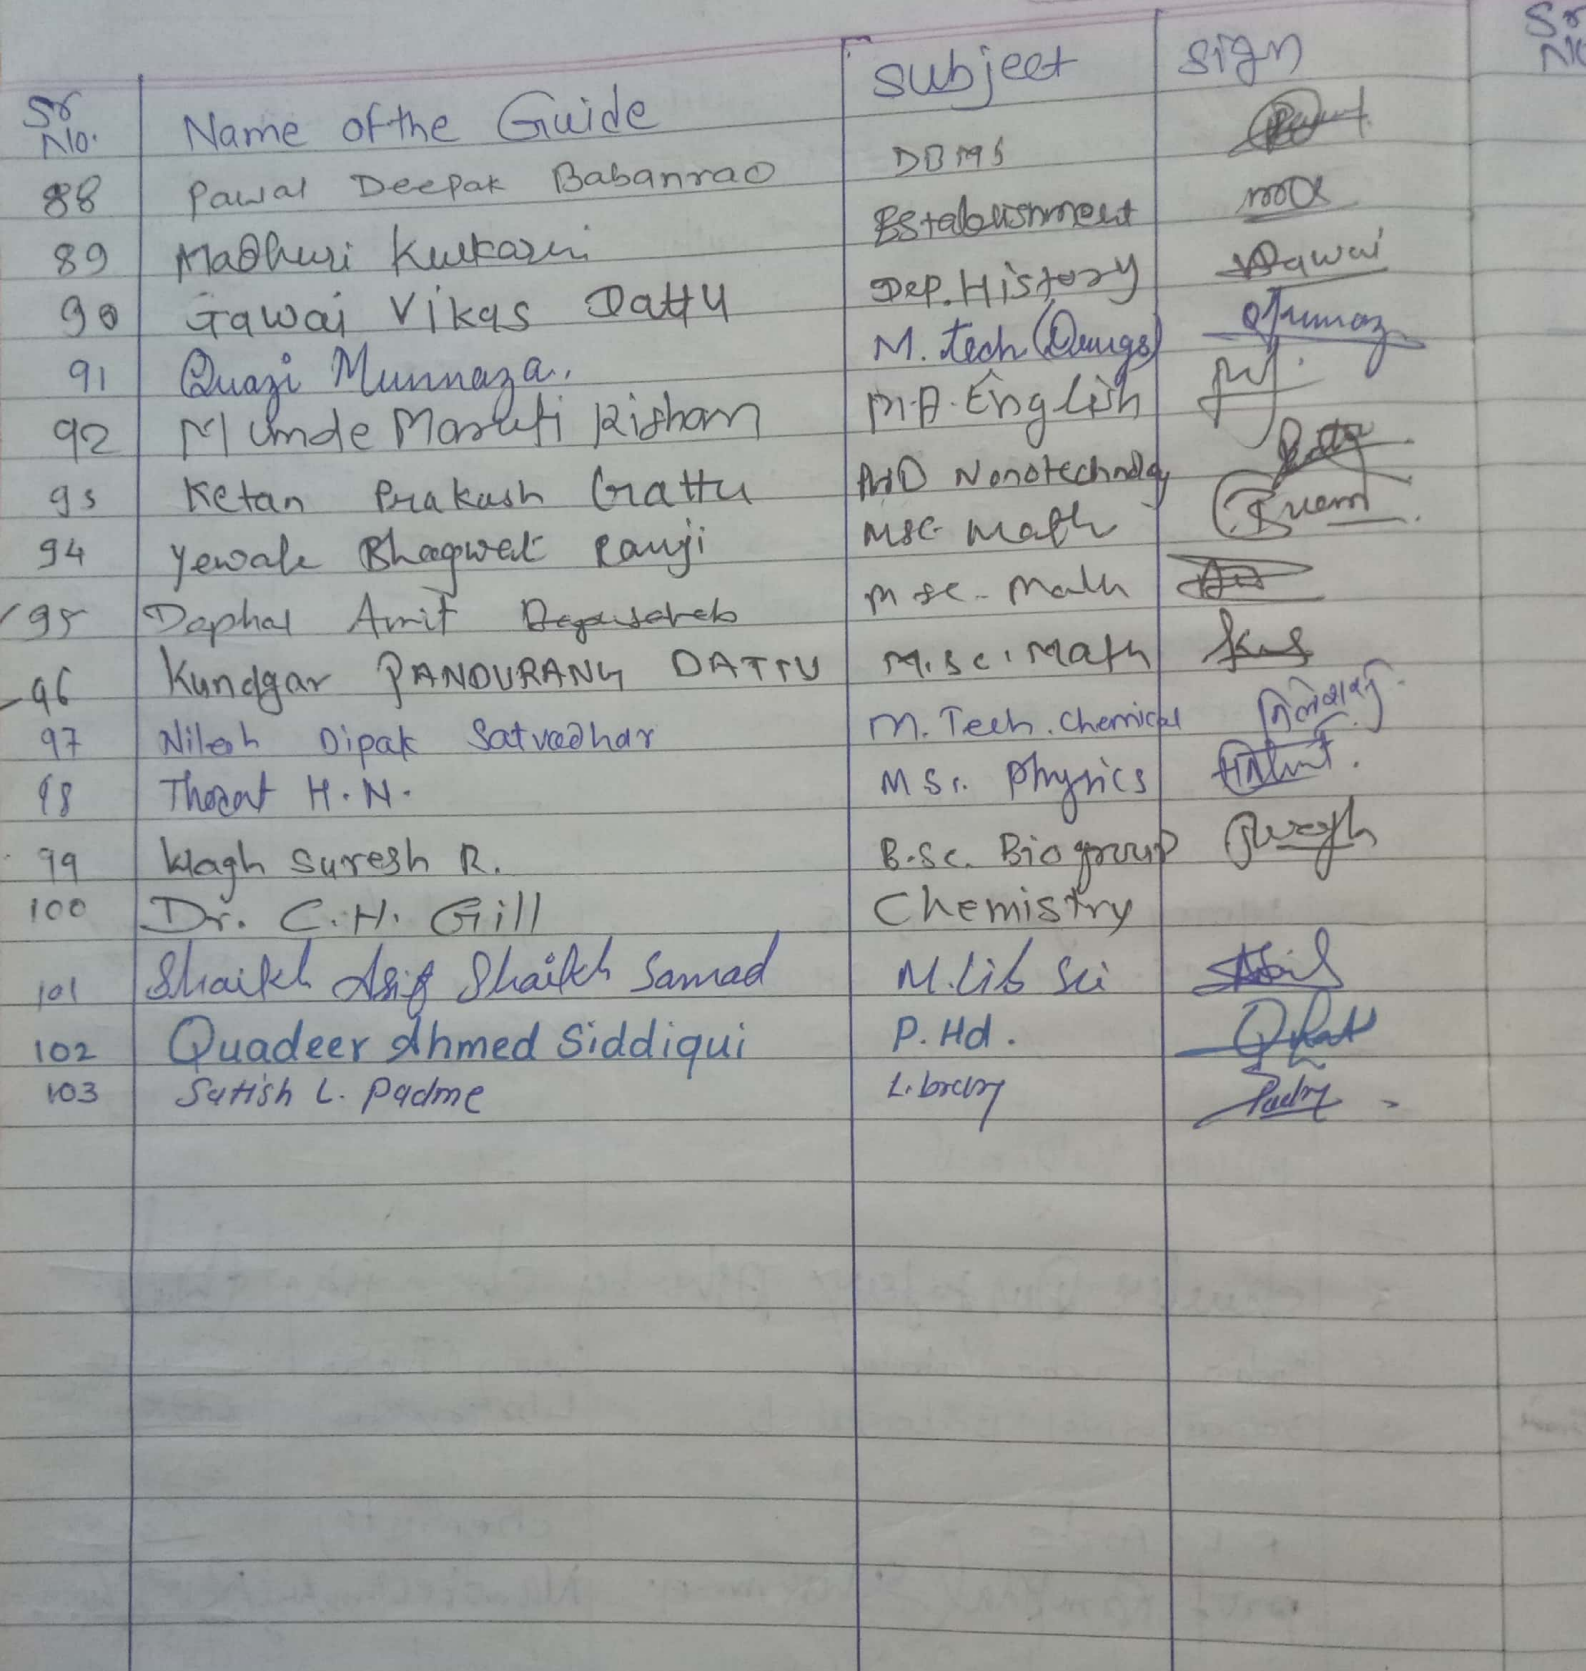 Sr No. Name of the Guide Subject Sign
88 Pawar Deepak Babanrao DBMS
89 Madhuri Kulkarni Establishment
90 Gawai Vikas Dattu Dep. History Gawai
91 Quazi Munnaza. M. Tech (Drugs)
92 Munde Maruti Kishan M.A. English
93 Ketan Prakash Gattu PhD Nanotechnology
94 Yewale Bhagwat Rauji MSc Math
95 Daphal Amit M Sc. Math
96 Kundgar PANDURANG DATTU M.Sc. Math
97 Nilesh Dipak Satvadhar M. Tech. Chemical
98 Thorat H. N. M Sc. Physics
99 Wagh Suresh R. B.Sc. Bio group Wagh
100 Dr. C. H. Gill Chemistry
101 Shaikh Asif Shaikh Samad M. Lib Sci
102 Quadeer Ahmed Siddiqui P. Hd.
103 Satish L. Padme Library
Sr